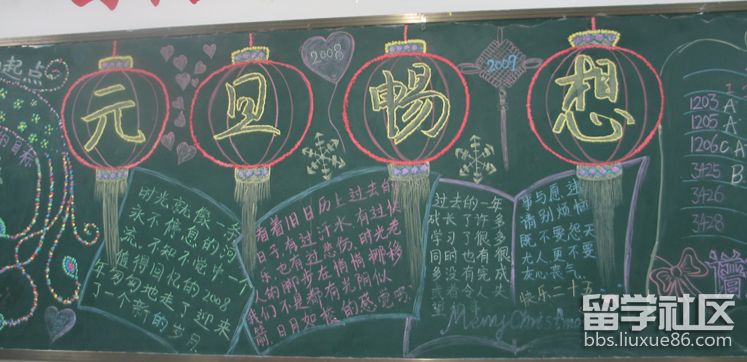 元旦畅想
2008
2009
起点
时光就像一条
永不停息的河
流,不知不觉中一个
值得回忆的2008
年匆匆地走了迎来
了一个新的岁月
看着旧日历上过去的
日子,有过汗水,有过
乐,也有过悲伤,时光老
人的脚步在悄悄挪移
我们不是都有光阴似
箭,日月如梭的感觉吗
过去的一年
成长了许多
学习了很多
同时也有很
多没有完成
步与愿违
请别烦恼
既不要怨天
尤人更不要
灰心丧气
快乐二十五
Merry Christmas
1203 A
1205 A
1206 C A
3425 B
3426
3428
留学社区
bbs.liuxue86.com